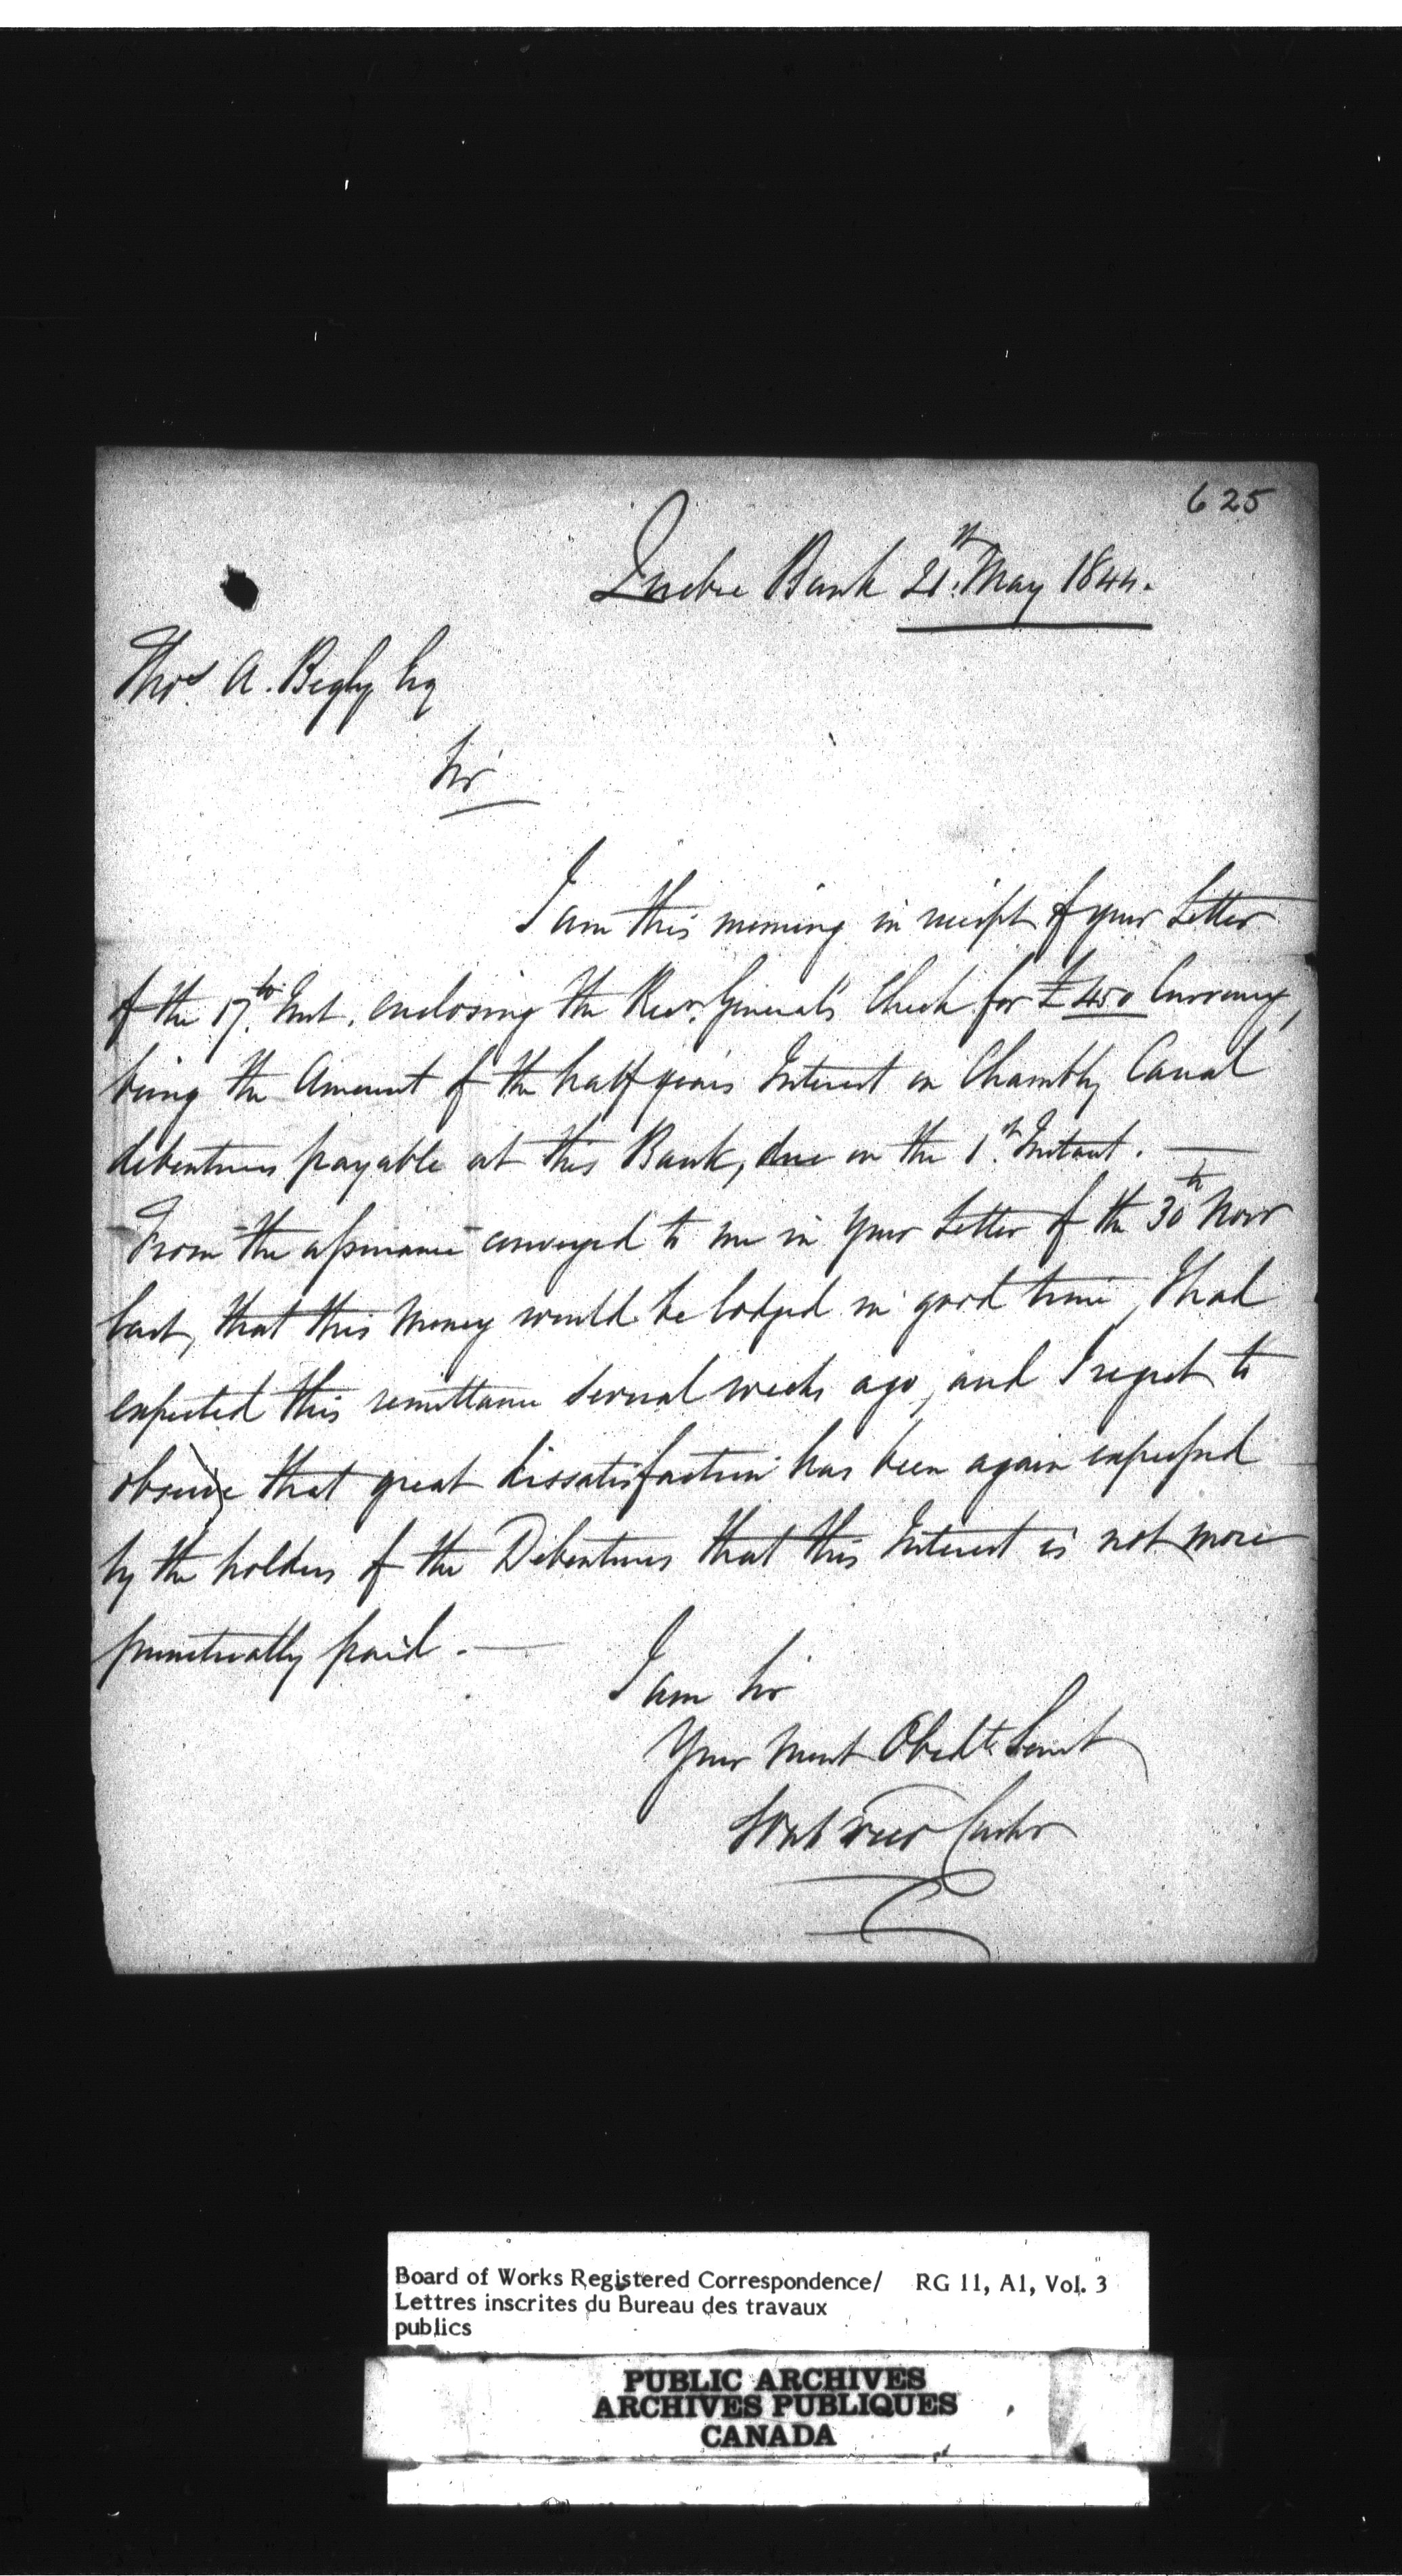 625
Quebec Bank 21st May 1844.
Thos A. Begly Esq
Sir
I am this morning in receipt of your Letter
of the 17th Inst. enclosing the Recr. General's Check for £450 Currency,
being the Amount of the half years Interest on Chambly Canal
debentures payable at this Bank, due on the 1st Instant. —
From the assurance conveyed to me in your Letter of the 30th Novr
last, that this money would be lodged in good time, I had
expected this remittance several weeks ago, and I regret to
observe that great dissatisfaction has been again expressed
by the holders of the Debentures that this Interest is not more
punctually paid. —
I am Sir
Your most Obedt Servt
Cashr
Board of Works Registered Correspondence/ RG 11, A1, Vol. 3
Lettres inscrites du Bureau des travaux
publics
PUBLIC ARCHIVES
ARCHIVES PUBLIQUES
CANADA